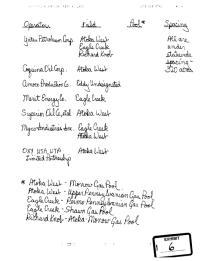 Operator Field Pool* Spacing
Yates Petroleum Corp. Atoka West All are
Eagle Creek under
Richard Knob Statewide
spacing -
Coquina Oil Corp. Atoka West 320 acres
Amoco Production Co. Eddy Undesignated
Merit Energy Co. Eagle Creek
Superior Oil Co., Ltd Atoka West
Myco Industries Inc. Eagle Creek
Atoka West
OXY USA WTP Atoka West
Limited Partnership
* Atoka West - Morrow Gas Pool
Atoka West - Upper Pennsylvanian Gas Pool
Eagle Creek - Permo Pennsylvanian Gas Pool
Eagle Creek - Strawn Gas Pool
Richard Knob - Atoka-Morrow Gas Pool
EXHIBIT
6